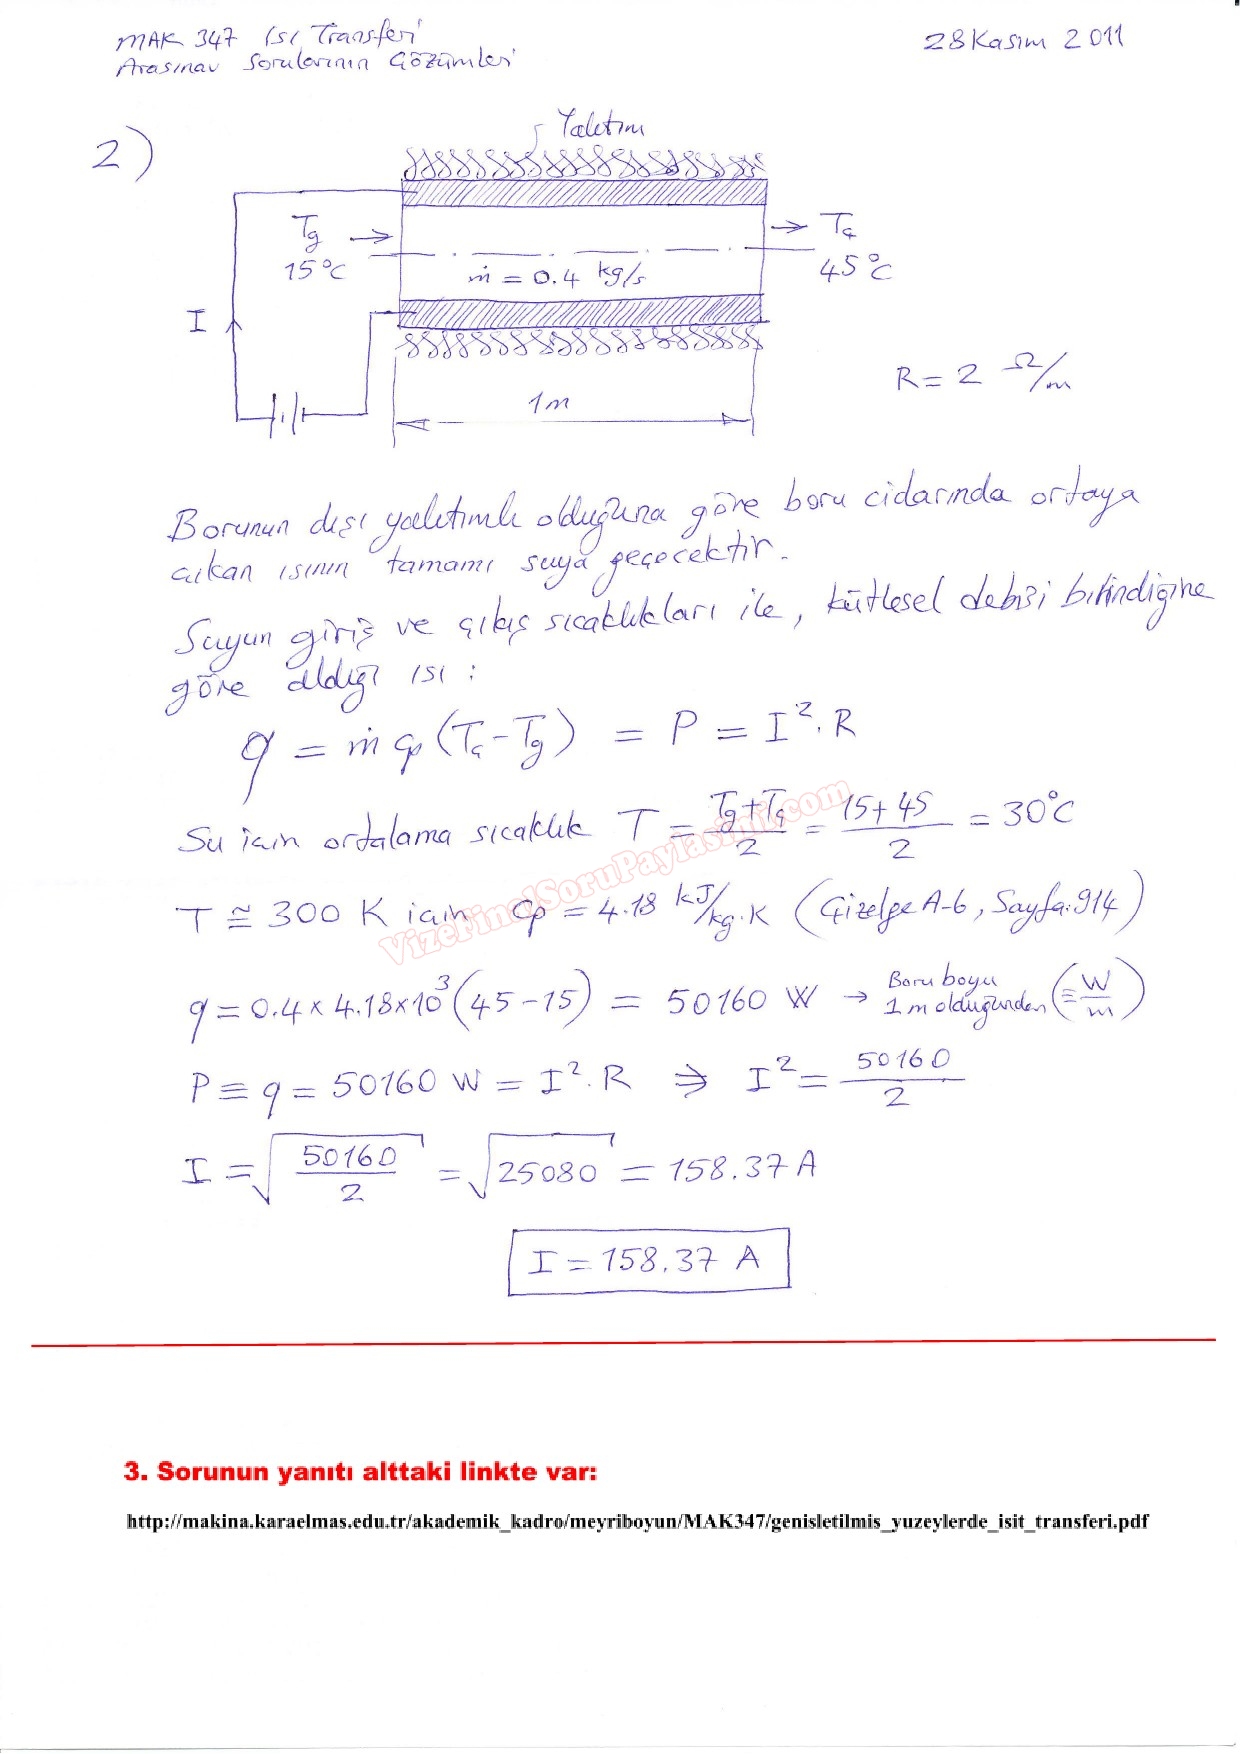 MAK 347 Isı Transferi
28 Kasım 2011
Arasınav Sorularının Çözümleri
2)
Yalıtım
Tg
15°C
ṁ = 0.4 kg/s
Tç
45°C
I
R = 2 Ω/m
1m
Borunun dışı yalıtımlı olduğuna göre boru cidarında ortaya
çıkan ısının tamamı suya geçecektir.
Suyun giriş ve çıkış sıcaklıkları ile, kütlesel debisi bilindiğine
göre aldığı ısı :
q = ṁ cp (Tç - Tg) = P = I². R
Su için ortalama sıcaklık T = (Tg + Tç)/2 = (15 + 45)/2 = 30°C
T ≅ 300 K için cp = 4.18 kJ/kg.K (Çizelge A-6, Sayfa:914)
VizeFinalSoruPaylasimi.com
q = 0.4 x 4.18x10³ (45 - 15) = 50160 W → Boru boyu 1m olduğundan (≡ W/m)
P ≡ q = 50160 W = I². R ⇒ I² = 50160/2
I = √(50160/2) = √25080 = 158.37 A
I = 158.37 A
3. Sorunun yanıtı alttaki linkte var:
http://makina.karaelmas.edu.tr/akademik_kadro/meyriboyun/MAK347/genisletilmis_yuzeylerde_isit_transferi.pdf